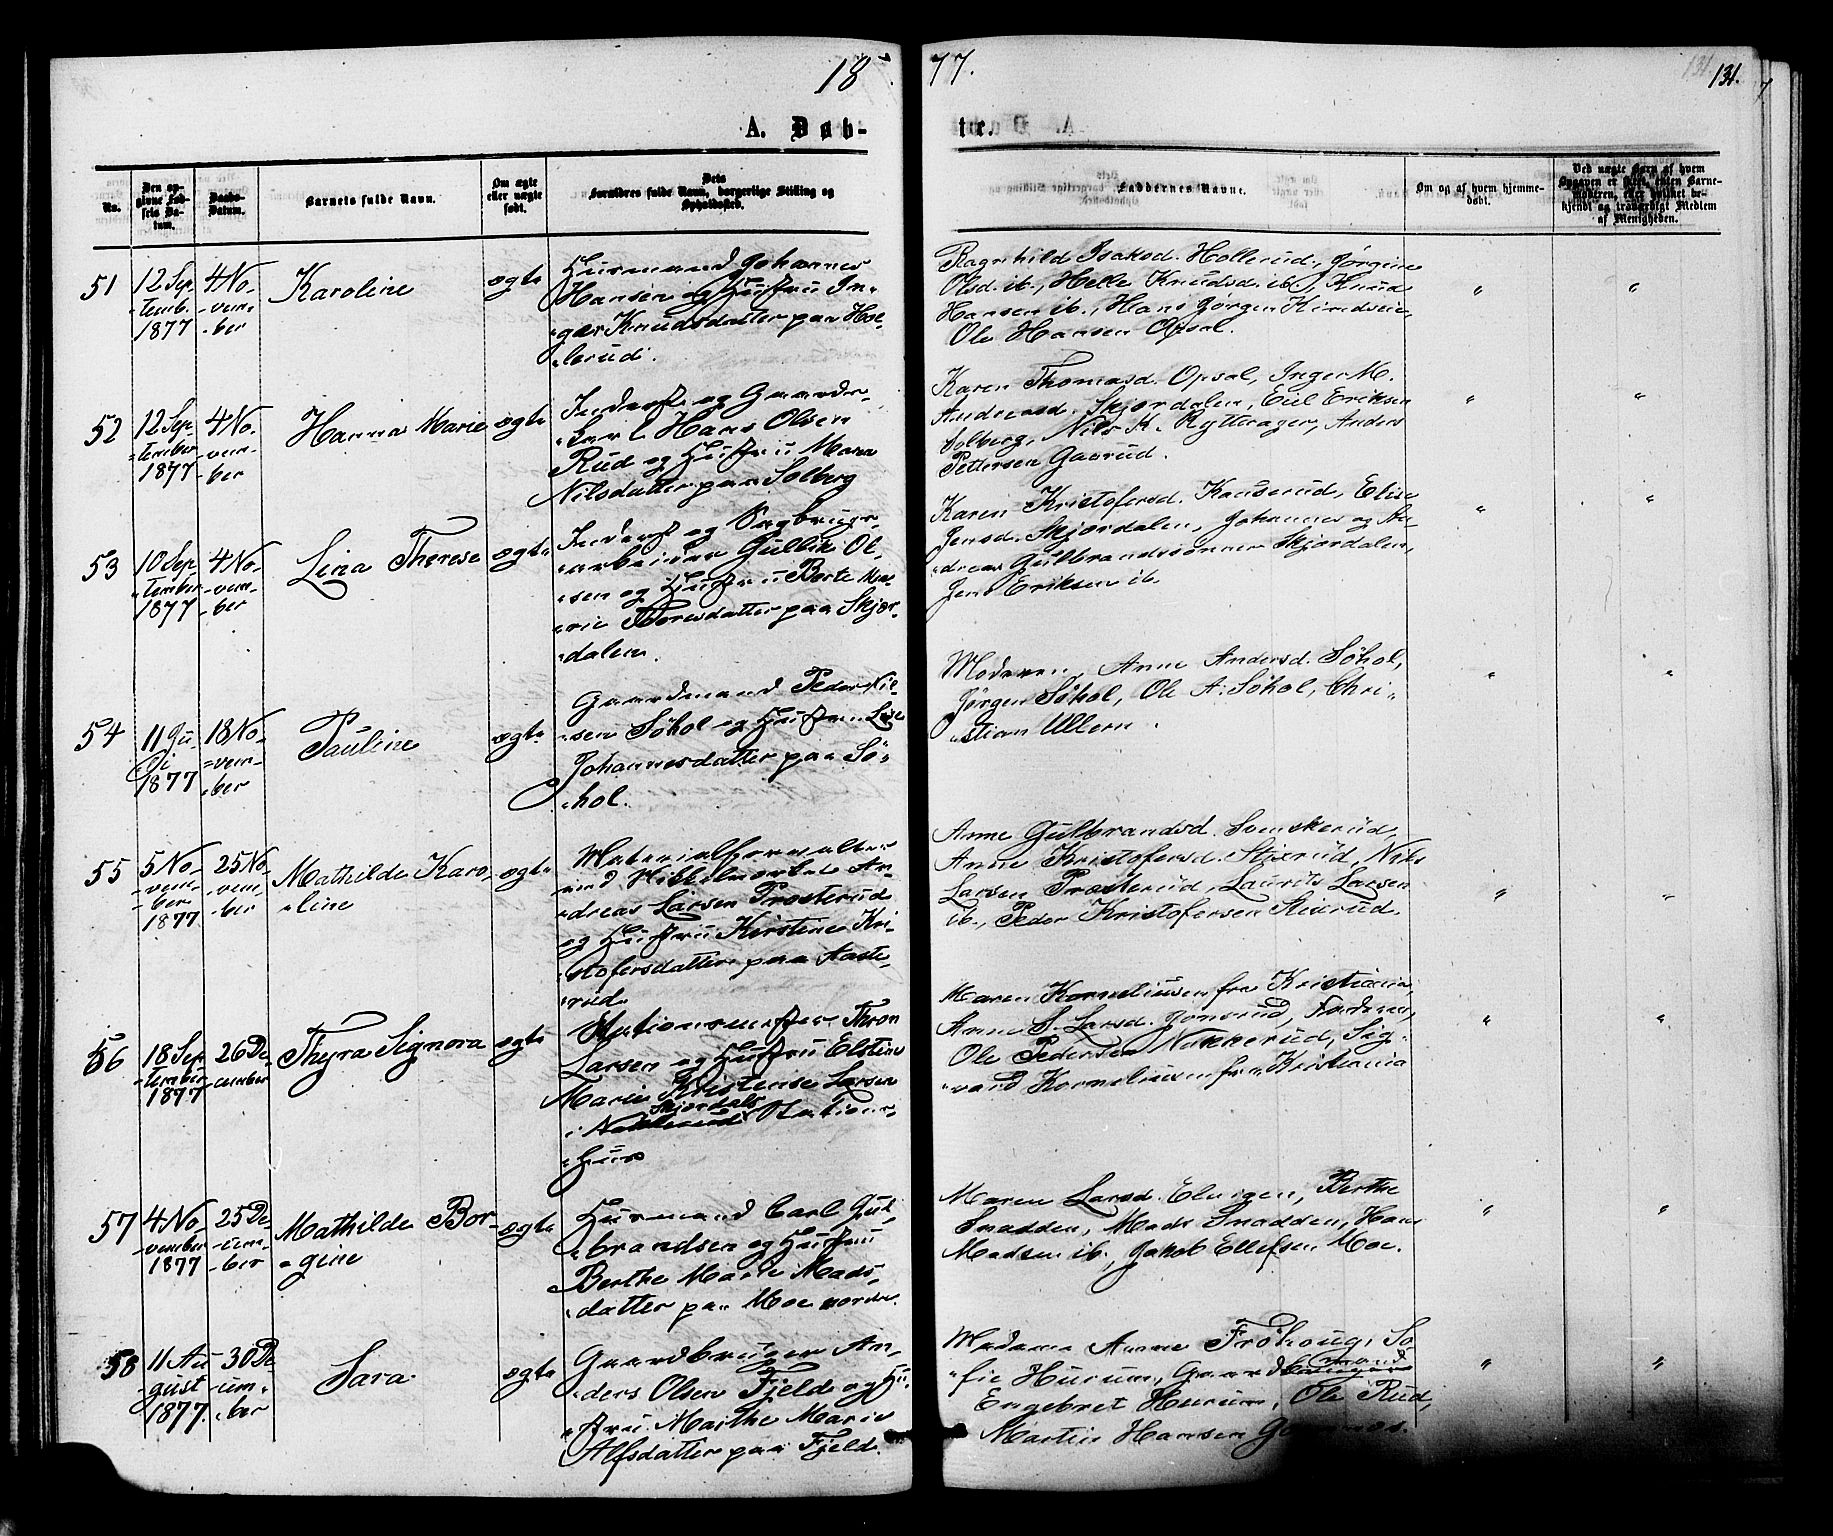 1877.
131.
A. Døb-
te.
No.
Den opgivne Fødsels Datum.
Daabs-Datum.
Barnets fulde Navn.
Om ægte eller uægte født.
Dets Forældres fulde Navn, borgerlige Stilling og Opholdssted.
Faddernes Navne.
Om og af hvem hjemmedøbt.
Ved uægte Barn af hvem Opgaven er skeet, enten Barnemoderen, eller hvilket bekjendt og troværdigt Medlem af Menigheden.
51
12 Sep-
-temb.
1877
4 No-
-vem-
-ber
Karoline
ægte
Husmand Johannes
Hansen og Hustru In-
-gær Knudsdatter paa Hol-
-lerud.
Ragnhild Isaksd. Hollerud, Jørgine
Olsd. ib., Helle Knudsd. ib., Knud
Hansen ib., Hans Jørgen Kindseie,
Ole Hansen Opsal.
52
12 Sep-
-tember
1877
4 No-
-vem-
-ber
Hanna Marie
ægte
Inderst og Gaardr-
-karl Hans Olsen
Rud og Hustru Maren
Nilsdatter paa Solberg
Karen Thomasd. Opsal, Inger M.
Andersd. Skjørdalen, Eril Eriksen
Solberg, Nils K. Rytterager, Anders
Pettersen Gaarud.
53
10 Sep-
-tember
1877
4 No-
-vem-
-ber
Lina Therese
ægte
Inderst og Sagbrugs-
-arbeider Gullik Ol-
-sen og Hustru Berte Ma-
-rie Thoresdatter paa Skjør-
-dalen.
Karen Kristofersd. Kauserud, Elise
Jensd. Skjørdalen, Johannes og An-
-dreas Gulbrandssønner Skjørdalen,
Jens Eriksen ib.
54
11 Ju-
li
1877
18 No-
-vem-
-ber
Pauline
ægte
Gaardmand Peder Nil-
-sen Søhol og Hustru Lise
Johannesdatter paa Sø-
-hol.
Moderen, Anne Andersd. Søhol,
Jørgen Søhol, Ole A. Søhol, Chri-
-stian Ullern.
55
5 No-
-vem-
-ber
1877
25 No-
-vem-
-ber
Mathilde Karo-
-line
ægte
Materialforvalter
ved Nikkelværket An-
dreas Larsen Prosterud
og Hustru Kirstine Kri-
-stofersdatter paa Aaste-
-rud
Anne Gulbrandsd. Svenskerud,
Anne Kristofersd. Stixrud, Nils
Larsen Prosterud, Laurits Larsen
ib., Peder Kristofersen Stixrud.
56
18 Sep-
-tember
1877
26 De-
-cember
Thyra Signora
ægte
Stationsmester Thron
Larsen og Hustru Elstine
Marie Kristense Larsen
Skjørdals
i Nakkerud Stations-
-huus
Maren Korneliusen fra Kristiania,
Anne S. Larsd. Jønsrud, Faderen,
Ole Pedersen Nakkerud, Sig-
-vard Korneliusen fra Kristiania
57
4 No-
-vember
1877
25 De-
-cem-
-ber
Mathilde Bor-
-gine
ægte
Husmand Carl Gul-
-brandsen og Hustru
Berthe Marie Mads-
-datter paa Moe nordre.
Maren Larsd. Elvigen, Berthe
Snadden, Mads Snadden, Hans
Madsen ib., Jakob Ellefsen Moe.
58
11 Au-
-gust
1877.
30 De-
-cem-
-ber
Sara
ægte
Gaardbruger An-
-ders Olsen Fjeld og Hu-
-stru Marthe Marie
Alfsdatter paa Fjeld.
Madame Anne Frøhoug, So-
-fie Hurum, Gaardmand
Engebret Hurum, Ole Rud,
Martin Hansen